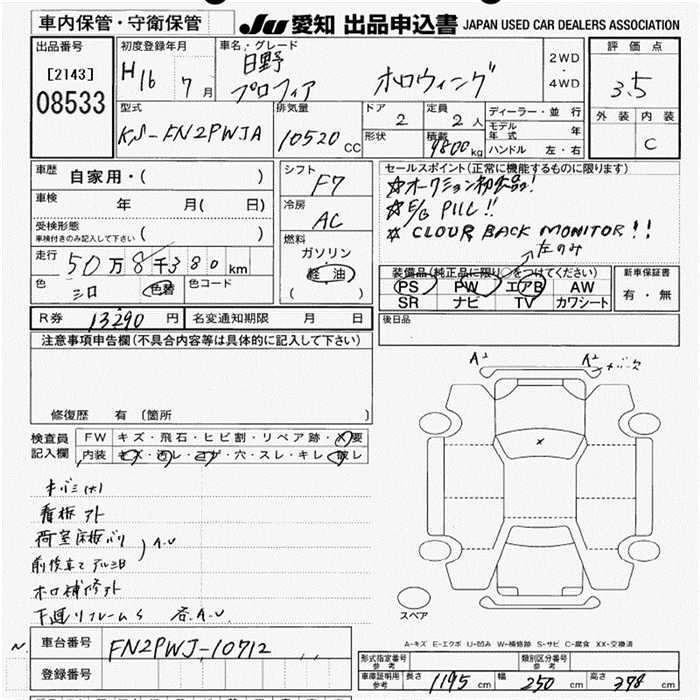 車内保管・守衛保管 JU 愛知 出品申込書 JAPAN USED CAR DEALERS ASSOCIATION
出品番号 初度登録年月 車名・グレード 2WD・4WD 評価点
[2143] H16 7月 日野 プロフィア ホロウィング 3.5
08533 型式 排気量 ドア 定員 ディーラー・並行 外装 内装
KS-FN2PWJA 10520 CC 2 2人 モデル年式 年 C
形状 積載 9800kg ハンドル 左・右
車歴 自家用・( ) シフト F7 セールスポイント(正常に機能するものに限ります)
車検 年 月( 日) 冷房 AC ☆オークション初出品!
受検形態 ( ) ☆E/G PILL!!
車検付きのみ記入して下さい 燃料 ☆CLOUR BACK MONITOR!!
走行 50万8千380km ガソリン 左のみ
色 シロ 色替 色コード 軽油 ( ) 装備品(純正品に限り○をつけてください) 新車保証書
PS PW エアB AW 有・無
SR ナビ TV カワシート
R券 13290円 名変通知期限 月 日 後日品
注意事項申告欄(不具合内容等は具体的に記入して下さい)
修復歴 有 〔箇所 〕
A2 A2
検査員記入欄 FW キズ・飛石・ヒビ割・リペア跡・X要
内装 キズ・汚レ・コゲ・穴・スレ・キレ・破レ
看板アト
荷室床板バリ A.U
ホロ補修アト
下廻リフレームS A.U
スペア
A-キズ E-エクボ U-凹み W-補修跡 S-サビ C-腐食 XX-交換済
車台番号 FN2PWJ-10712
登録番号
形式指定番号 参考 類別区分番号 参考
車庫証明用 参考 長さ 1195cm 幅 250cm 高さ 378cm